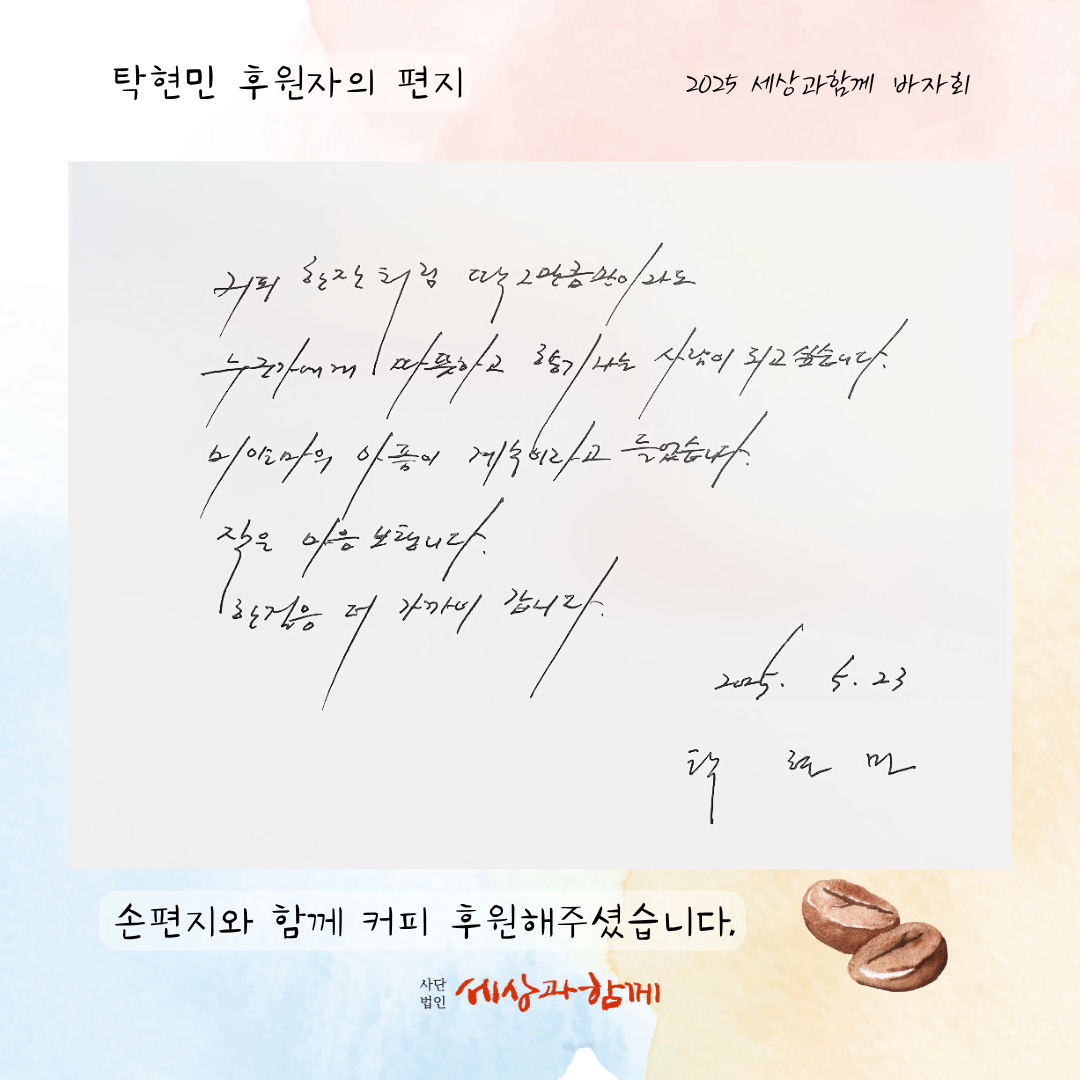 탁현민 후원자의 편지
2025 세상과함께 바자회
커피 한잔처럼 딱 그만큼만이라도
누군가에게 따뜻하고 향기나는 사람이 되고 싶습니다.
미얀마의 아픔이 계속이라고 들었습니다.
작은 마음 보탭니다.
한걸음 더 가까이 갑니다.
2025. 5. 23
탁 현 민
손편지와 함께 커피 후원해주셨습니다.
사단법인 세상과함께